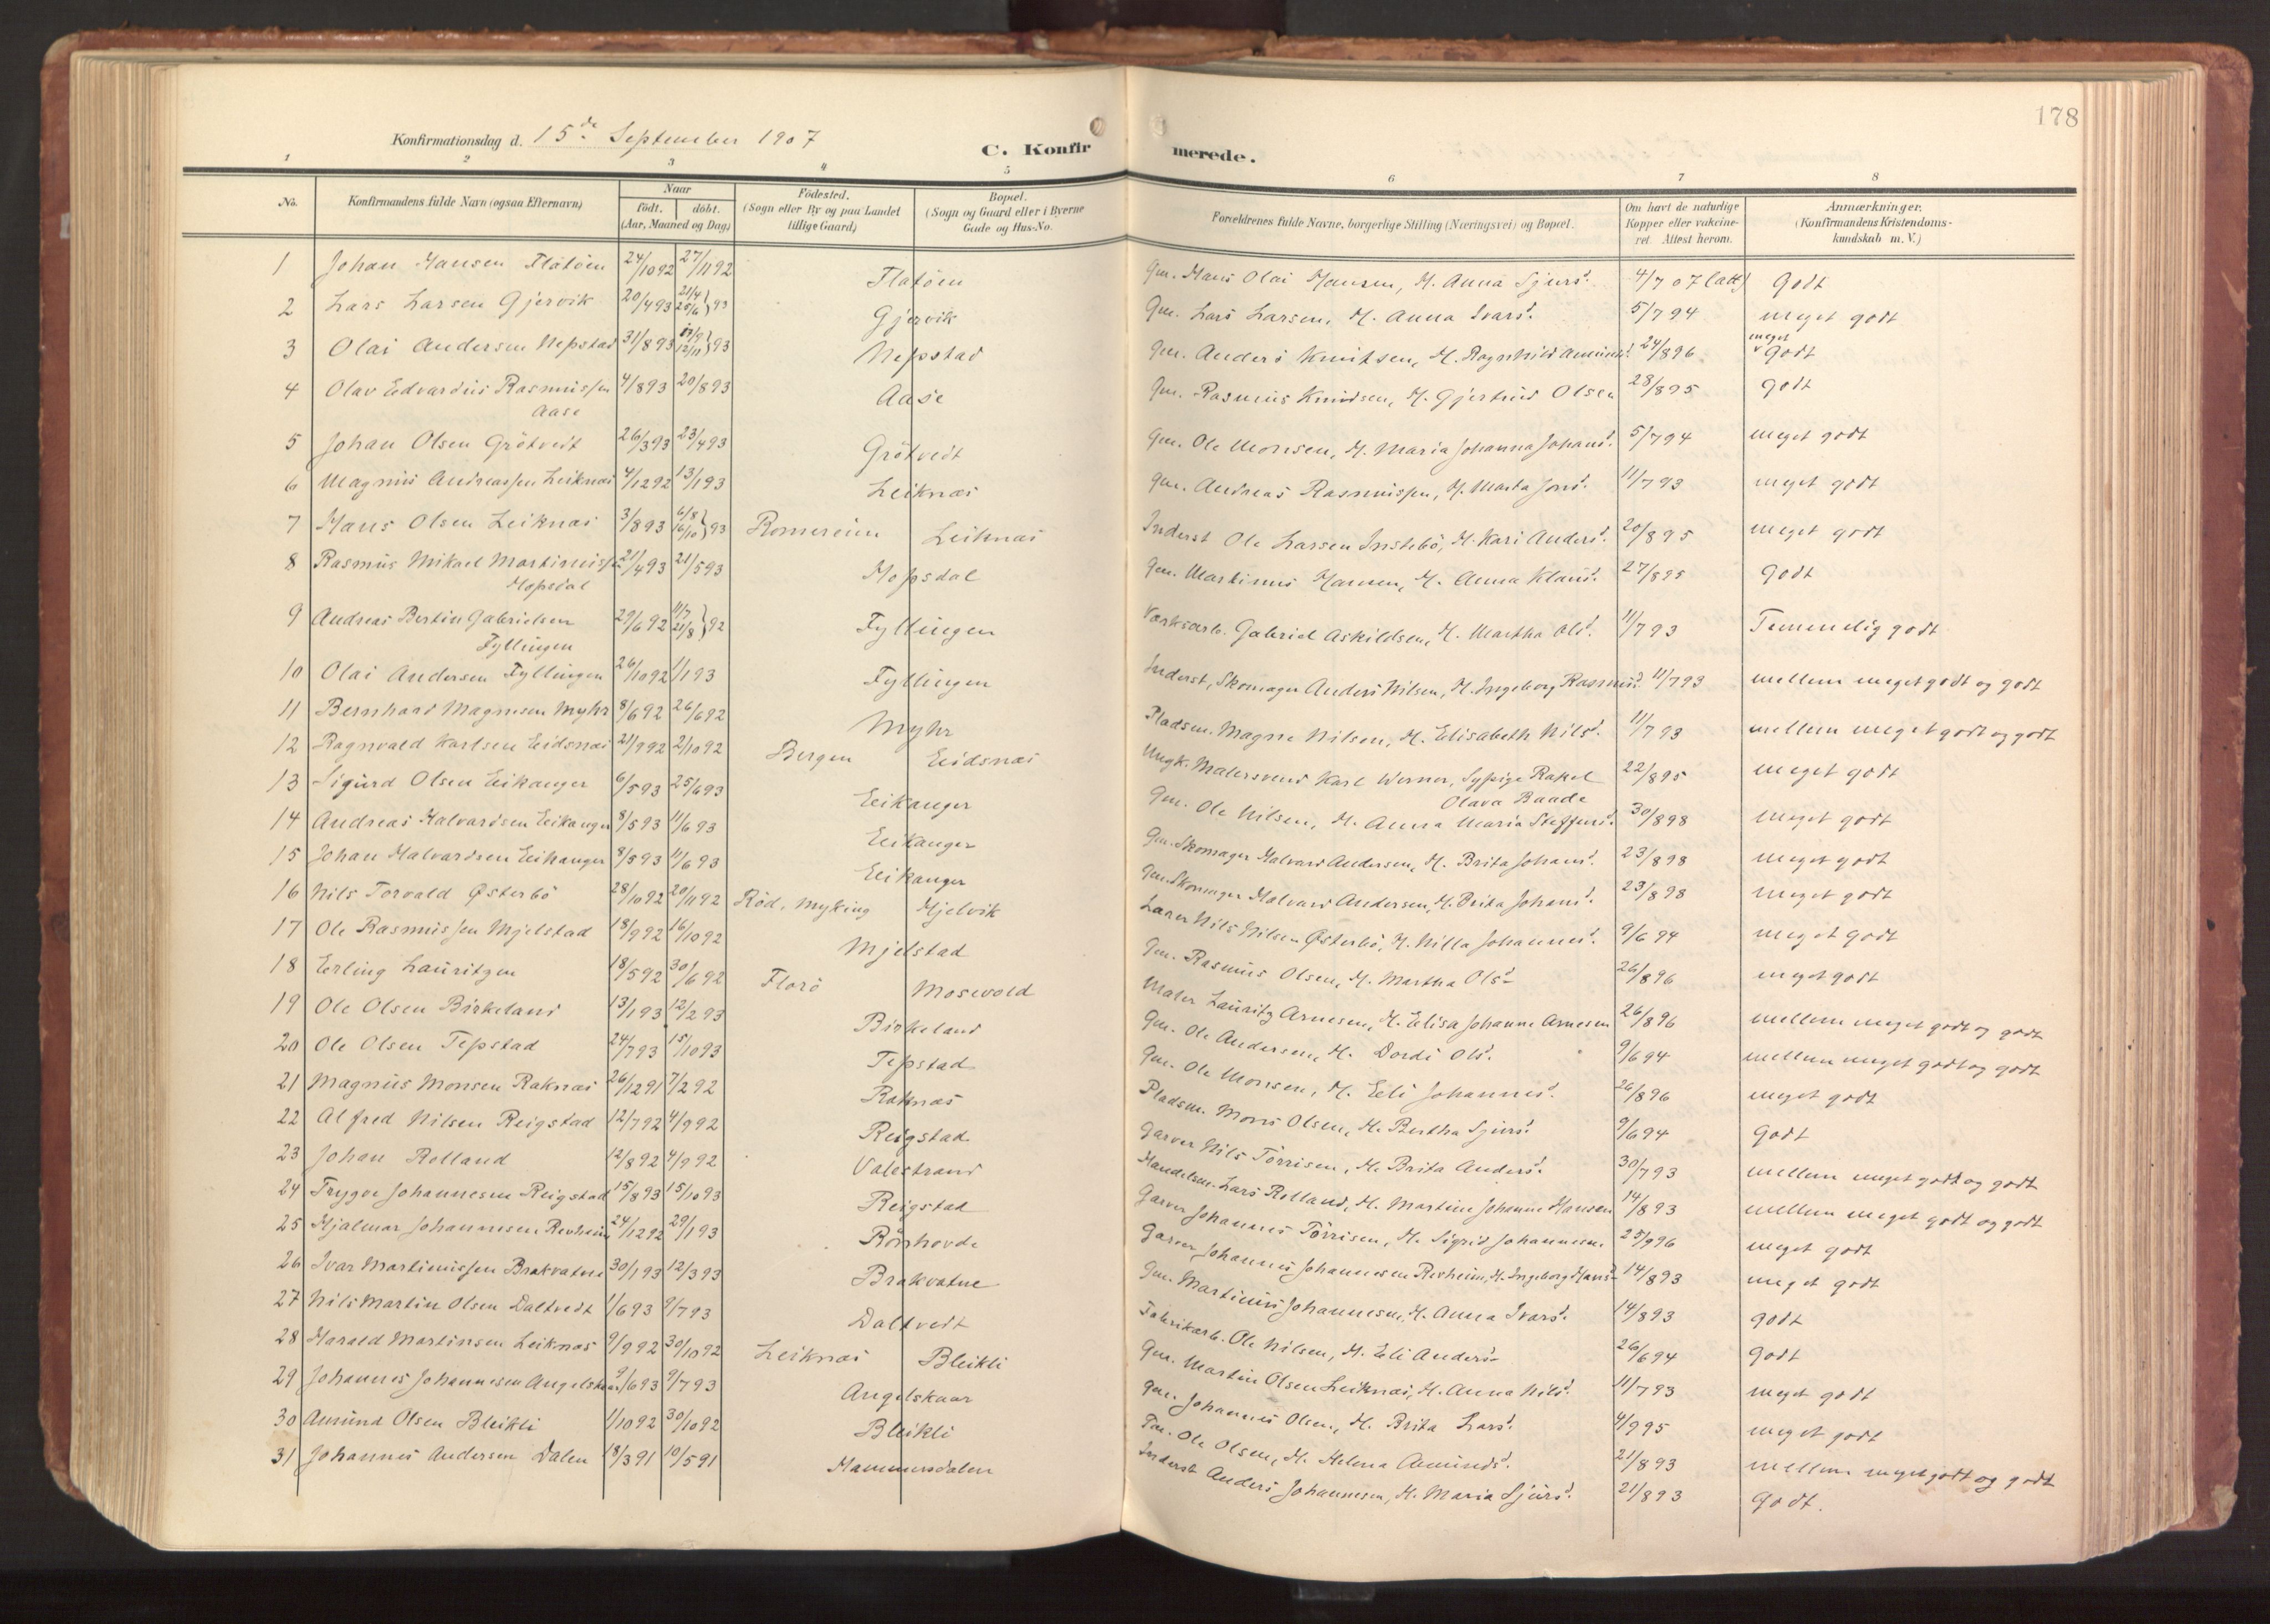 178
Konfirmationsdag d. 15de September 1907
C. Konfirmerede.
1 2 3 4 5 6 7 8
No. Konfirmandens fulde Navn (ogsaa Efternavn) Naar født. døbt. (Aar, Maaned og Dag) Fødested. (Sogn eller By og paa Landet tillige Gaard) Bopæl. (Sogn og Gaard eller i Byerne Gade og Hus-No. Forældrenes fulde Navne, borgerlige Stilling (Næringsvei) og Bopæl. Om havt de naturlige Kopper eller vakcineret. Attest herom. Anmærkninger. (Konfirmandens Kristendomskundskab m. V.)
1 Johan Hansen Flatöen 24/1092 27/1192 Flatöen Gm. Hans Olai Hansen, H. Anna Sjursd. 4/707 (att) Godt
2 Lars Larsen Gjervik 20/493 21/4 25/6 } 93 Gjervik Gm. Lars Larsen, H. Anna Ivarsd. 5/794 meget godt
3 Olai Andersen Nepstad 31/893 12/11 } 93 Nepstad Gm. Anders Knutsen, H. Ragnhild Amundsd. 24/896 meget godt
4 Olav Edvardus Rasmussen Aase 4/893 20/893 Aase Gm. Rasmus Knudsen, H. Gjertrud Olsen 28/895 godt
5 Johan Olsen Grötvedt 26/393 23/493 Grötvedt Gm. Ole Monsen, H. Maria Johanna Johansd. 5/794 meget godt
6 Magnus Andreassen Leiknæs 4/1292 13/193 Leiknæs Gm. Andreas Rasmussen, H. Marta Jonsd. 11/793 meget godt
7 Hans Olsen Leiknæs 3/893 6/8 16/10 } 93 Romereim Leiknæs Inderst Ole Larsen Instebö, H. Kari Andersd. 20/895 meget godt
8 Rasmus Mikael Martinussen Hopsdal 21/493 21/593 Hopsdal Gm. Martinus Hansen, H. Anna Klausd. 27/895 Godt
9 Andreas Bertin Gabrielsen Fyllingen 29/692 11/7 21/8 } 92 Fyllingen Værksarb. Gabriel Askildsen, H. Martha Olsd. 11/793 Temmelig godt
10 Olai Andersen Fyllingen 26/1092 1/193 Fyllingen Inderst, Skomager Anders Nilsen, H. Ingeborg Rasmusd. 11/793 mellem meget godt og godt
11 Bernhard Magnesen Myhr 8/692 26/692 Myhr Pladsm. Magne Nilsen, H. Elisabeth Nilsd. 11/793 mellem meget godt og godt
12 Ragnvald Karlsen Eidsnæs 21/992 2/1092 Bergen Eidsnæs Ungk. Malersvend Karl Werner, Sypige Rakel Olava Baade 22/895 meget godt
13 Sigurd Olsen Eikanger 6/593 25/693 Eikanger Gm. Ole Nilsen, H. Anna Maria Steffensd. 30/898 meget godt
14 Andreas Halvardsen Eikanger 8/593 11/693 Eikanger Gm. Skomager Halvard Andersen, H. Brita Johansd. 23/898 meget godt
15 Johan Halvardsen Eikanger 8/593 11/693 Eikanger Gm. Skomager Halvard Andersen, H. Brita Johansd. 23/898 meget godt
16 Nils Torvald Østerbö 28/1092 20/1192 Röd, Myking Hjelvik Lærer Nils Nilsen Østerbö, H. Nilla Johannesd. 9/694 meget godt
17 Ole Rasmussen Mjelstad 18/992 16/1092 Mjelstad Gm. Rasmus Olsen, H. Martha Olsd. 26/896 meget godt
18 Erling Lauritzen 18/592 30/692 Florö Mosevold Maler Lauritz Arnesen, H. Elisa Johanne Arnesen 26/896 mellem meget godt og godt
19 Ole Olsen Birkeland 13/193 12/293 Birkeland Gm. Ole Andersen, H. Dordi Olsd. 9/694 mellem meget godt og godt
20 Ole Olsen Tepstad 24/793 15/1093 Tepstad Gm. Ole Monsen, H. Eli Johannesd. 26/896 meget godt
21 Magnus Monsen Raknæs 26/1291 7/292 Raknæs Pladsm. Mons Olsen, H. Bertha Sjursd. 9/694 Godt
22 Alfred Nilsen Reigstad 12/792 4/992 Reigstad Garver Nils Törrisen, H. Brita Andersd. 30/793 mellem meget godt og godt
23 Johan Rolland 12/892 4/992 Valestrand Handelsm. Lars Rolland, H. Martine Johanne Hansen 14/893 mellem meget godt og godt
24 Trygve Johannesen Reigstad 15/893 15/1093 Reigstad Garver Johannes Törrisen, H. Sigrid Johannesen 25/996 meget godt
25 Hjalmar Johannesen Revheim 24/1292 29/193 Rönhovde Garver Johannes Johannesen Revheim, H. Ingeborg Hansd. 14/893 meget godt
26 Ivar Martinussen Brakvatne 30/193 12/393 Brakvatne Gm. Martinus Johannesen, H. Anna Ivarsd. 14/893 godt
27 Nils Martin Olsen Daltvedt 1/693 9/793 Daltvedt Fabrikarb. Ole Nilsen, H. Eli Andersd. 26/694 Godt
28 Harald Martinsen Leiknæs 9/992 30/1092 Leiknæs Bleikli Gm. Martin Olsen Leiknæs, H. Anna Nilsd. 11/793 meget godt
29 Johannes Johannesen Angelskaar 9/693 9/793 Angelskaar Gm. Johannes Olsen, H. Brita Larsd. 4/995 meget godt
30 Amund Olsen Bleikli 1/1092 30/1092 Bleikli Gm. Ole Olsen, H. Helena Amundsd. 21/893 mellem meget godt og godt
31 Johannes Andersen Dalen 18/391 10/591 Hammersdalen Inderst Anders Johannesen, H. Maria Sjursd. 21/893 Godt.